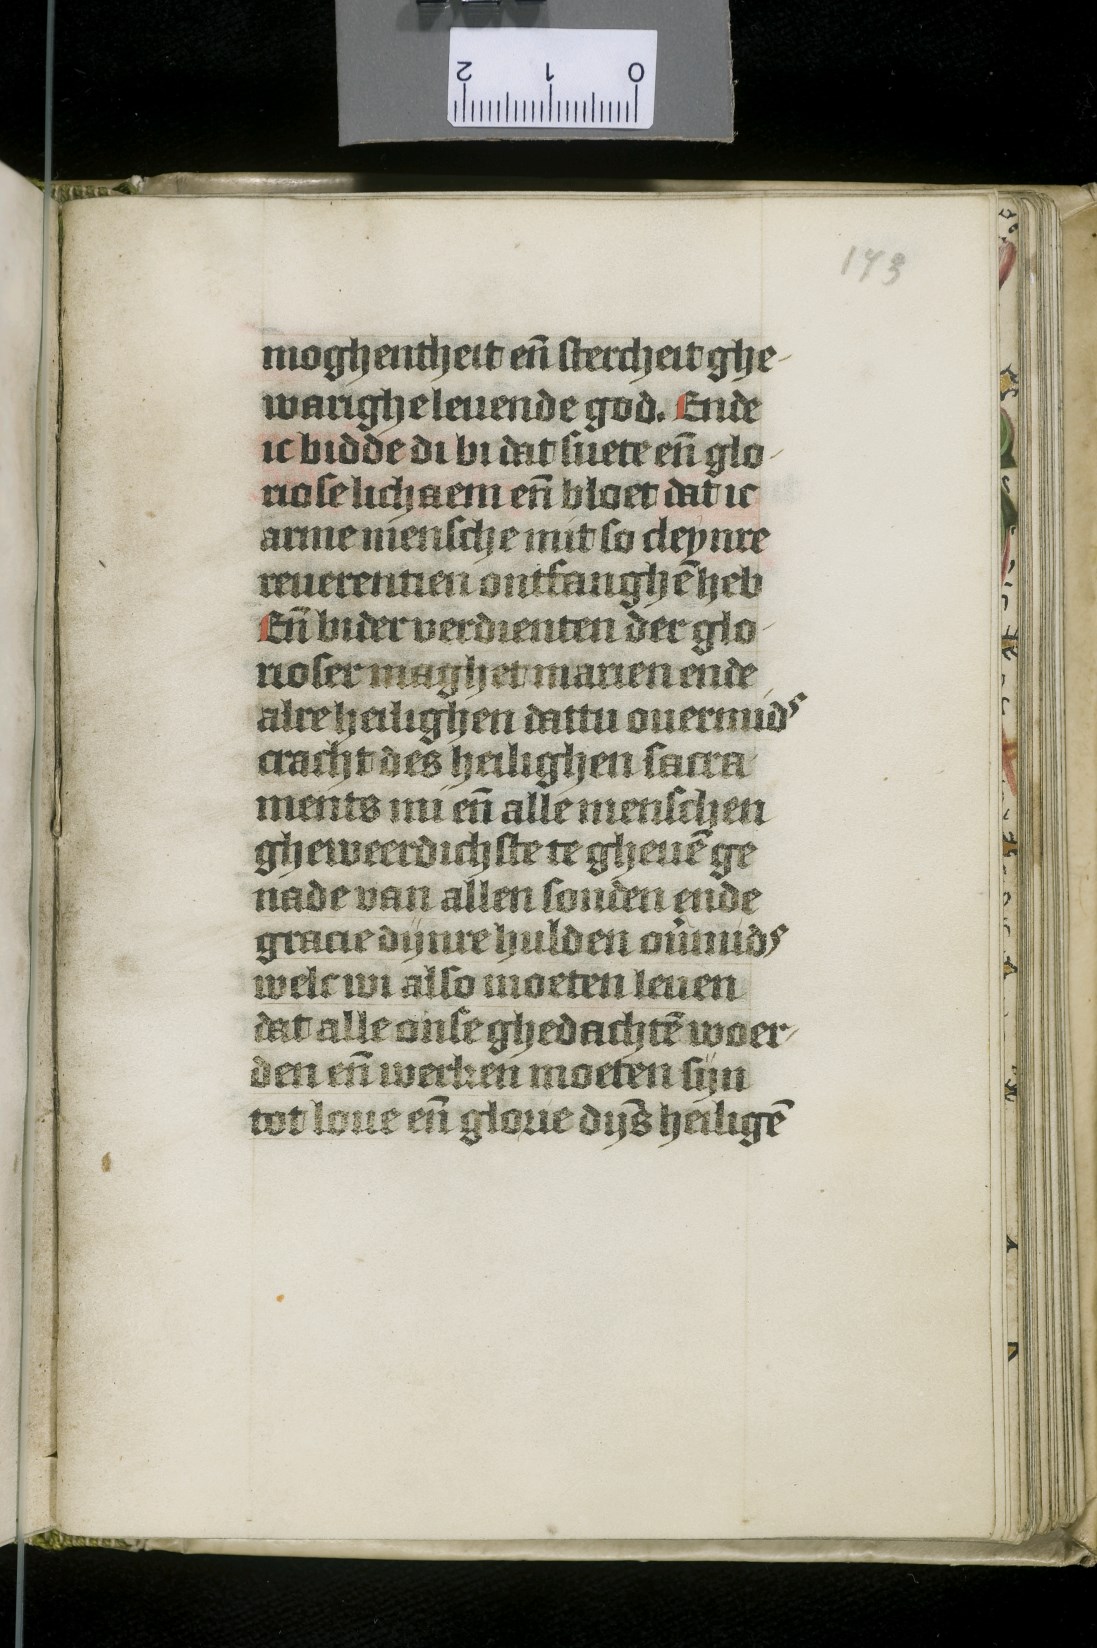 2 1 0
173
moghentheit en̄ stercheit ghe-
warighe leuende god. Ende
ic bidde di bi dat suete en̄ glo-
riose lichaem en̄ bloet dat ic
arme mensche mit so cleynre
reuerentien ontfanghē heb
En̄ bider verdienten der glo-
rioser maghet marien ende
alre heilighen dattu ouermidˢ
cracht des heilighen sacra
ments mi en̄ alle menschen
gheweerdichste te gheuē ge
nade van allen sonden ende
gracie dijnre hulden ou̓midˢ
welc wi also moeten leuen
dat alle onse ghedachtē woer-
den en̄ werken moeten sijn
tot loue en̄ glorie dijs̄ heiligē